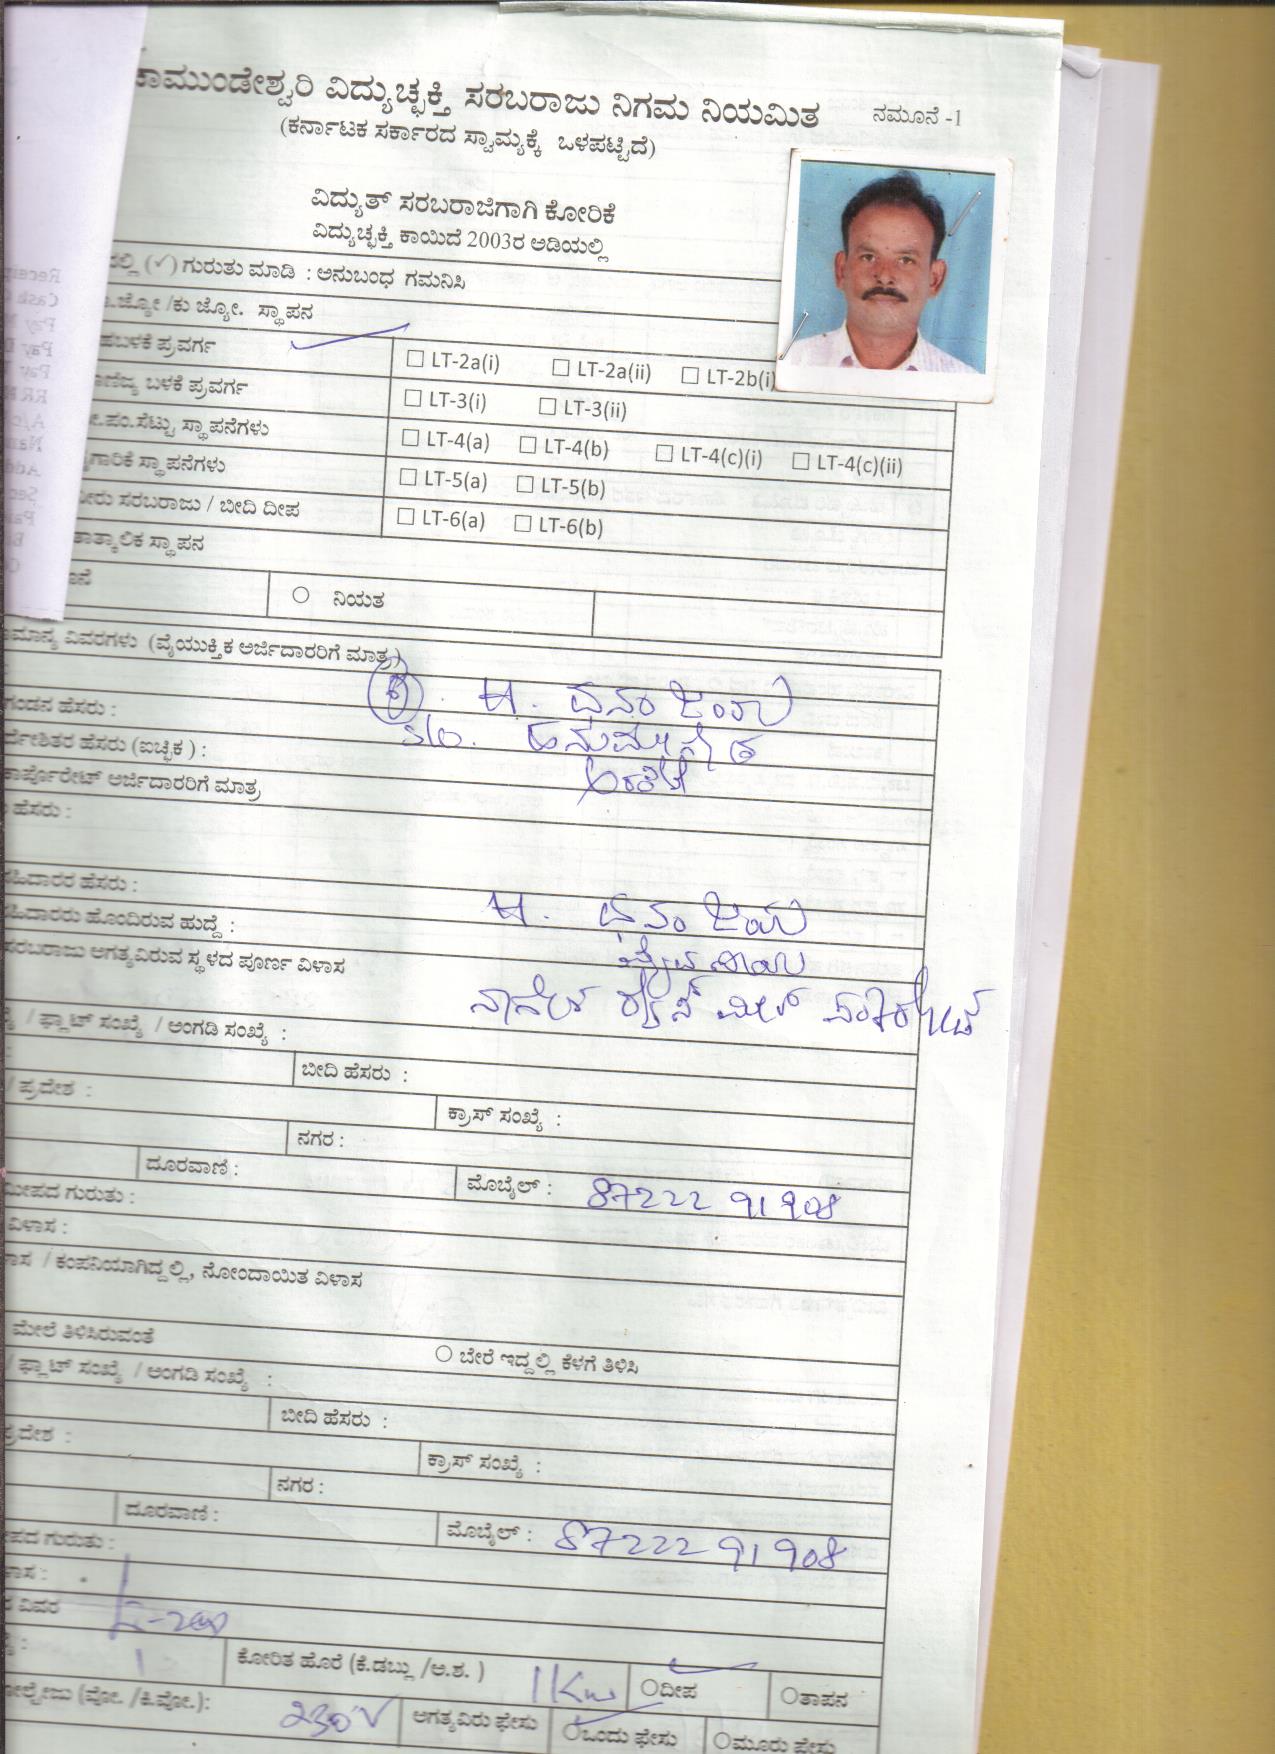 ಚಾಮುಂಡೇಶ್ವರಿ ವಿದ್ಯುಚ್ಛಕ್ತಿ ಸರಬರಾಜು ನಿಗಮ ನಿಯಮಿತ ನಮೂನೆ -1
(ಕರ್ನಾಟಕ ಸರ್ಕಾರದ ಸ್ವಾಮ್ಯಕ್ಕೆ ಒಳಪಟ್ಟಿದೆ)
ವಿದ್ಯುತ್ ಸರಬರಾಜಿಗಾಗಿ ಕೋರಿಕೆ
ವಿದ್ಯುಚ್ಛಕ್ತಿ ಕಾಯಿದೆ 2003ರ ಅಡಿಯಲ್ಲಿ
ದಲ್ಲಿ (✓) ಗುರುತು ಮಾಡಿ : ಅನುಬಂಧ ಗಮನಿಸಿ
.ಜ್ಯೋ /ಕು ಜ್ಯೋ. ಸ್ಥಾಪನ
ಹಬಳಕೆ ಪ್ರವರ್ಗ ☐ LT-2a(i) ☐ LT-2a(ii) ☐ LT-2b(i)
ಣಿಜ್ಯ ಬಳಕೆ ಪ್ರವರ್ಗ ☐ LT-3(i) ☐ LT-3(ii)
.ಪಂ.ಸೆಟ್ಟು ಸ್ಥಾಪನೆಗಳು ☐ LT-4(a) ☐ LT-4(b) ☐ LT-4(c)(i) ☐ LT-4(c)(ii)
ಗಾರಿಕೆ ಸ್ಥಾಪನೆಗಳು ☐ LT-5(a) ☐ LT-5(b)
ೀರು ಸರಬರಾಜು / ಬೀದಿ ದೀಪ ☐ LT-6(a) ☐ LT-6(b)
ತಾತ್ಕಾಲಿಕ ಸ್ಥಾಪನ
○ ನಿಯತ
ಮಾನ್ಯ ವಿವರಗಳು (ವೈಯುಕ್ತಿಕ ಅರ್ಜಿದಾರರಿಗೆ ಮಾತ್ರ)
H. ಧನಂಜಯ
ಗಂಡನ ಹೆಸರು : S/o. ಹನುಮೇಗೌಡ
ರ್ದೇಶಿತರ ಹೆಸರು (ಐಚ್ಛಿಕ ) :
ಕಾರ್ಪೊರೇಟ್ ಅರ್ಜಿದಾರರಿಗೆ ಮಾತ್ರ
ಹೆಸರು :
ಸಹಿದಾರರ ಹೆಸರು : H. ಧನಂಜಯ
ಸಹಿದಾರರು ಹೊಂದಿರುವ ಹುದ್ದೆ :
ಸರಬರಾಜು ಅಗತ್ಯವಿರುವ ಸ್ಥಳದ ಪೂರ್ಣ ವಿಳಾಸ
/ ಫ್ಲಾಟ್ ಸಂಖ್ಯೆ / ಅಂಗಡಿ ಸಂಖ್ಯೆ :
ಬೀದಿ ಹೆಸರು :
/ ಪ್ರದೇಶ : ಕ್ರಾಸ್ ಸಂಖ್ಯೆ :
ನಗರ :
ದೂರವಾಣಿ : ಮೊಬೈಲ್ : 87222 91908
ಮೀಪದ ಗುರುತು :
ವಿಳಾಸ :
ಾಸ / ಕಂಪನಿಯಾಗಿದ್ದಲ್ಲಿ, ನೋಂದಾಯಿತ ವಿಳಾಸ
ಮೇಲೆ ತಿಳಿಸಿರುವಂತೆ ○ ಬೇರೆ ಇದ್ದಲ್ಲಿ ಕೆಳಗೆ ತಿಳಿಸಿ
/ ಫ್ಲಾಟ್ ಸಂಖ್ಯೆ / ಅಂಗಡಿ ಸಂಖ್ಯೆ :
ಬೀದಿ ಹೆಸರು :
ಪ್ರದೇಶ : ಕ್ರಾಸ್ ಸಂಖ್ಯೆ :
ನಗರ :
ದೂರವಾಣಿ : ಮೊಬೈಲ್ : 87222 91908
ೀಪದ ಗುರುತು :
ಳಾಸ :
ರ ವಿವರ
ಕೋರಿತ ಹೊರೆ (ಕೆ.ಡಬ್ಲ್ಯು /ಅ.ಶ. ) 1 Kw ○ದೀಪ ○ತಾಪನ
ೋಲ್ಟೇಜು (ವೋ. /ಕಿ.ವೋ.): 230 V ಅಗತ್ಯವಿರು ಫೇಸು ○ಒಂದು ಫೇಸು ○ಮೂರು ಫೇಸು